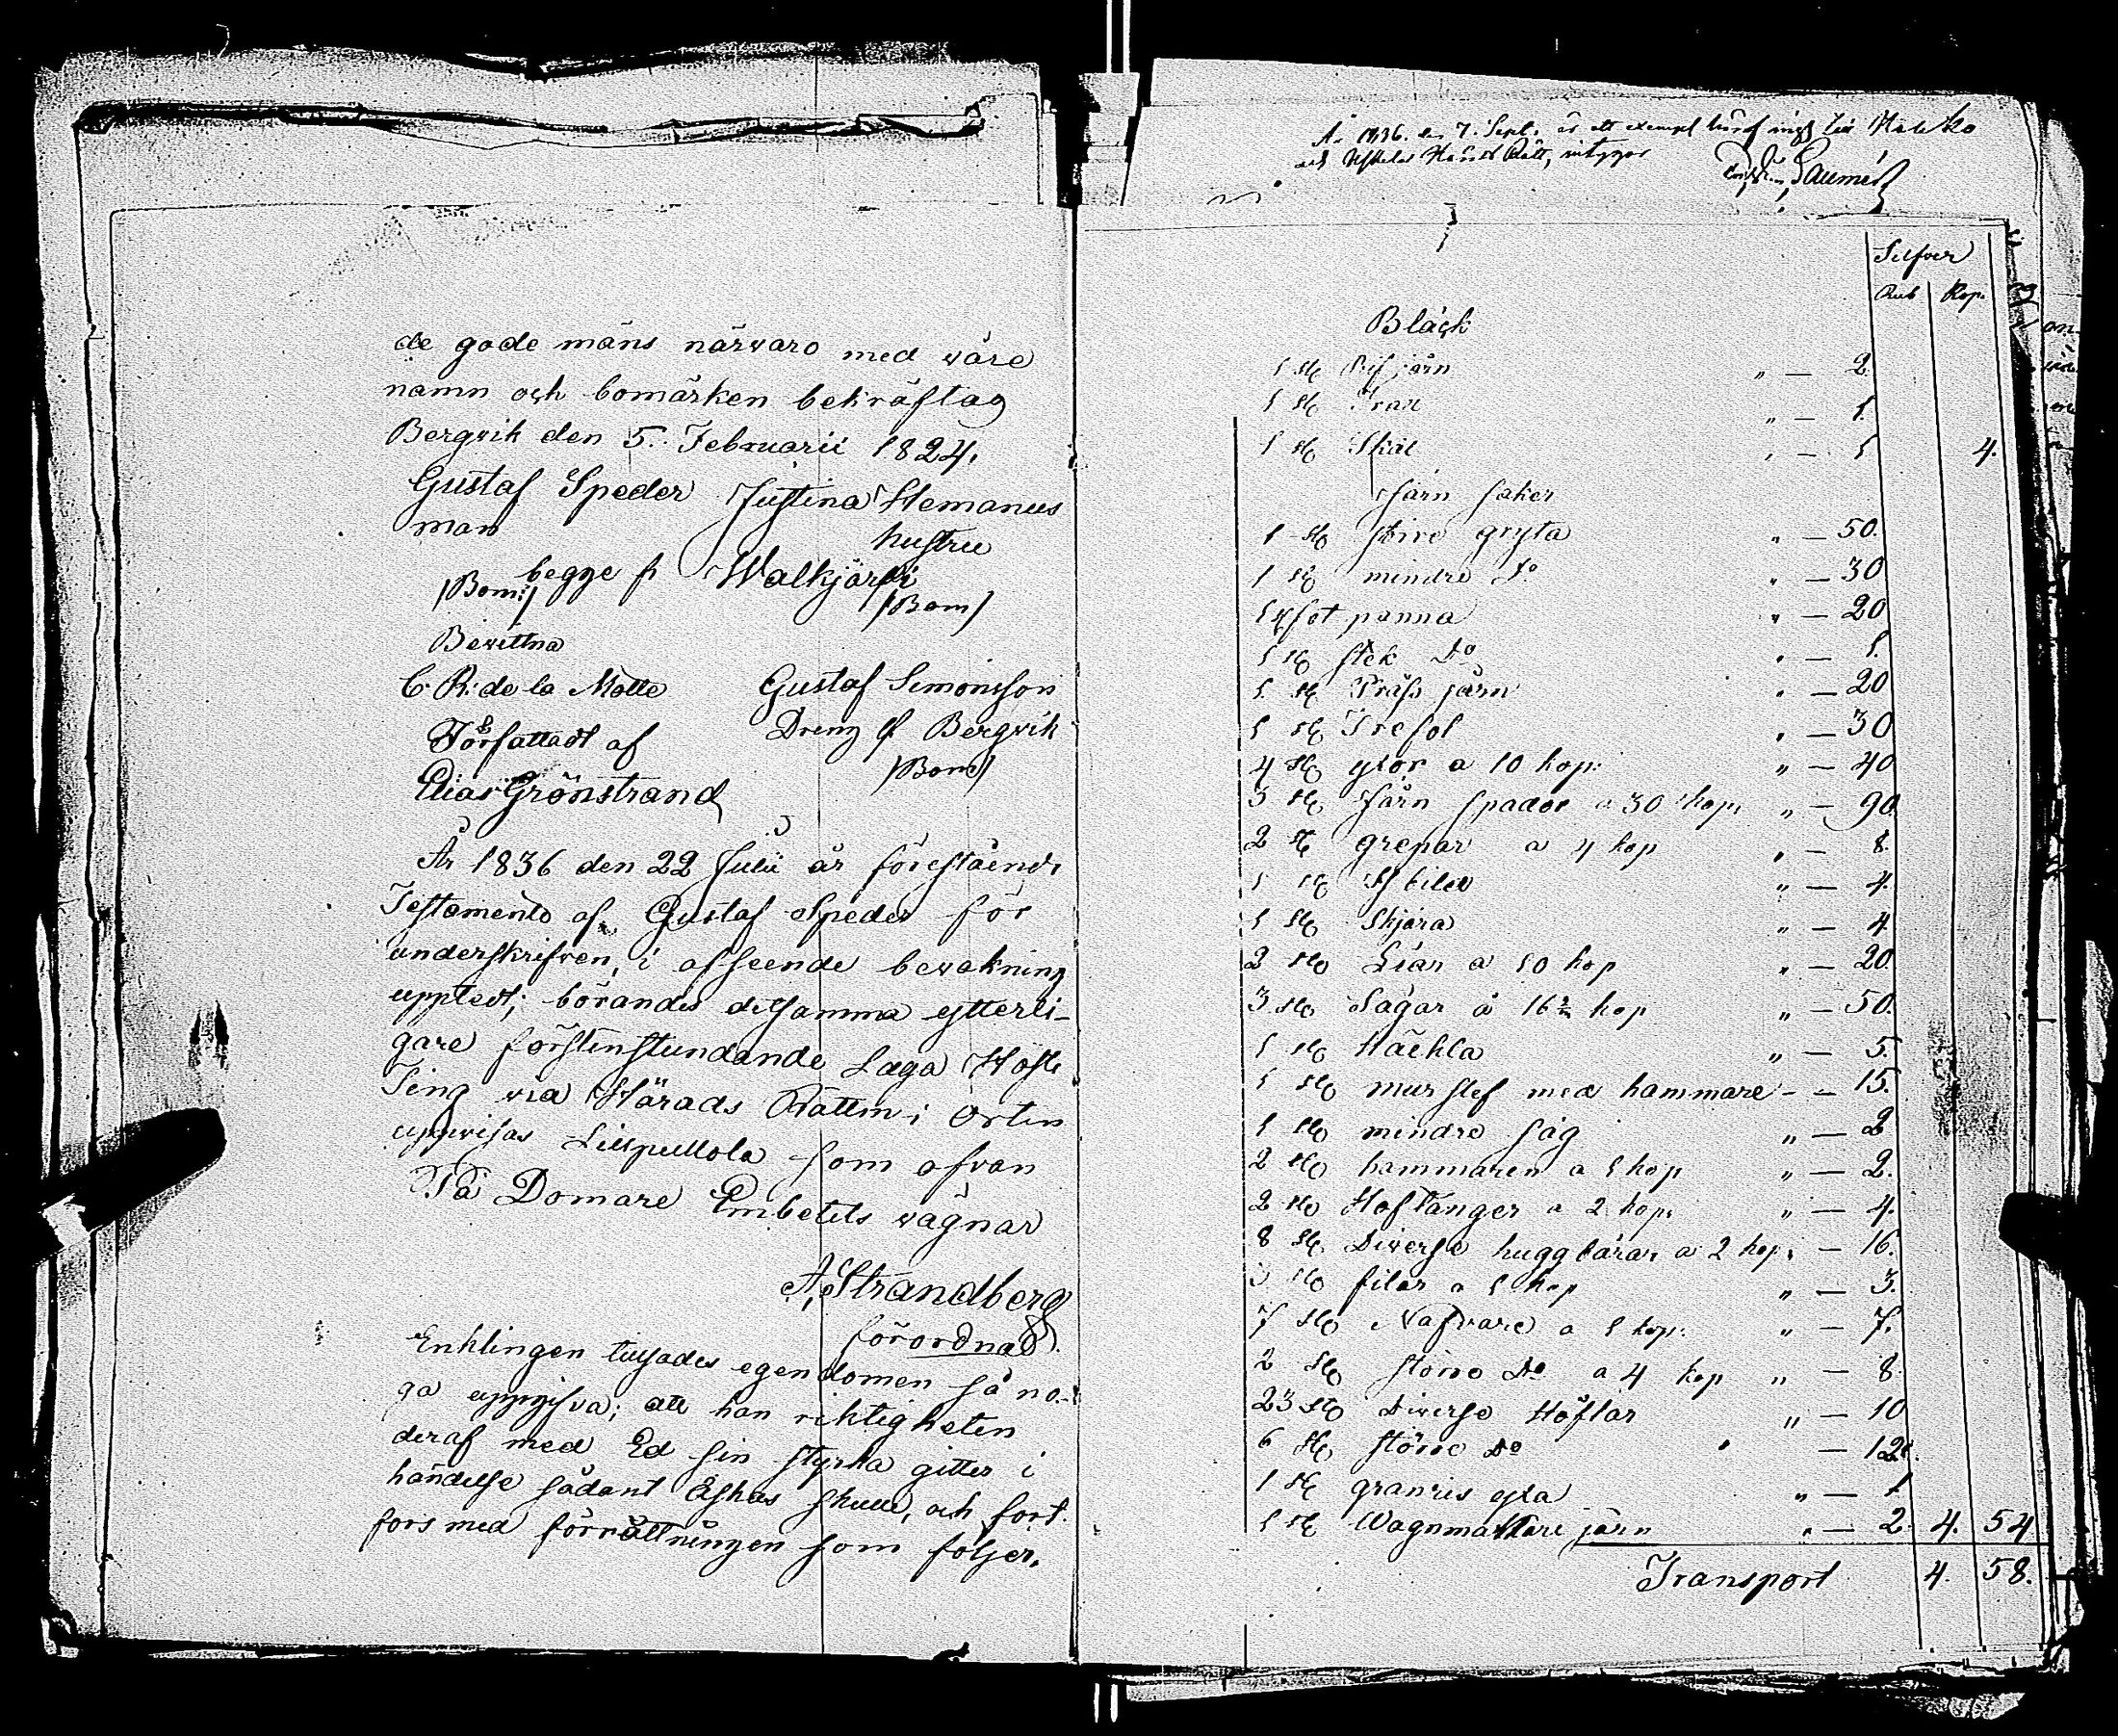 de gode mäns närvaro med våre
namn och bomärken bekräftag
Bergvik den 5. Februarii 1824.
Gustaf Speder Justina Hemanus
man hustru
begge fr Walkjärfvi
/Bom:/ /Bom/
Bevittna
C. R: de la Motte Gustaf Simonsson
Författadt af Dreng f Bergvik
Elias Grönstrand /Bom/
År 1836 den 22 Julii är föreståend
Testamente af Gustaf Speder för
underskrifven, i afseende bevakning
uppted; börandes detsamma ytterli-
gare förstinstundande Laga Höste
Ting vid Härads Rätten i Orten
uppvisas Lillpellola som ofvan
På Domare Embetets vägnar
A. Strandberg
förordnad.
Enklingen tillsades egendomen så no-
ga uppgifva; att han riktigheten
deraf med Ed sin styrka gitter i
händelse sådant äskas skulle, och fort
fors med förrättningen som följer.
År 1836. den 7. Sept. är ett exempl häraf ingif till
och Häradts Rätt, intygar
Laurén
Silfver
Rub Kop.
Bläck
1 st Rifjärn " — 2.
1 st Tratt " — 1.
1 st Skål " — 1 4.
Järn saker
1 st större gryta " — 50.
1 st mindre Do " — 30
1 st fot panna " — 20
1 st stek Do " — 1.
1 st Präss järn " — 20
1 st Trefot " — 30
4 st yxor a 10 kop: " — 40
3 st Järn spador a 30 kop: " — 90.
2 st grepar a 4 kop " — 8.
1 st " — 4.
1 st Skjära " — 4.
2 st Liar a 10 kop " — 20.
3 st Sågar å 16 2/3 kop " — 50.
1 st Häckla " — 5.
1 st mur slef med hammare - — 15.
1 st mindre såg " — 2
2 st hammaren a 1 kop " — 2.
2 st Hoftänger a 2 kop: " — 4.
8 st Diverse huggbärar a 2 kop: — 16.
3 st filar a 1 kop " — 3.
7 st Nafvare a 1 kop: " — 7.
2 st större Do a 4 kop " — 8.
23 st Diverse Höflar " — 10
6 st större Do " — 12.
1 st granris yxa " — 1
1 st Wagnmakare järn " — 2. 4. 54
Transport 4. 58.